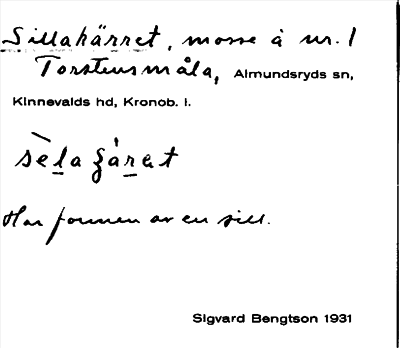 Sillakärret, mosse å nr. 1
Torstensmåla, Almundsryds sn,
Kinnevalds hd, Kronob. l.
sèla ʒárat
Har formen av en sill.
Sigvard Bengtson 1931